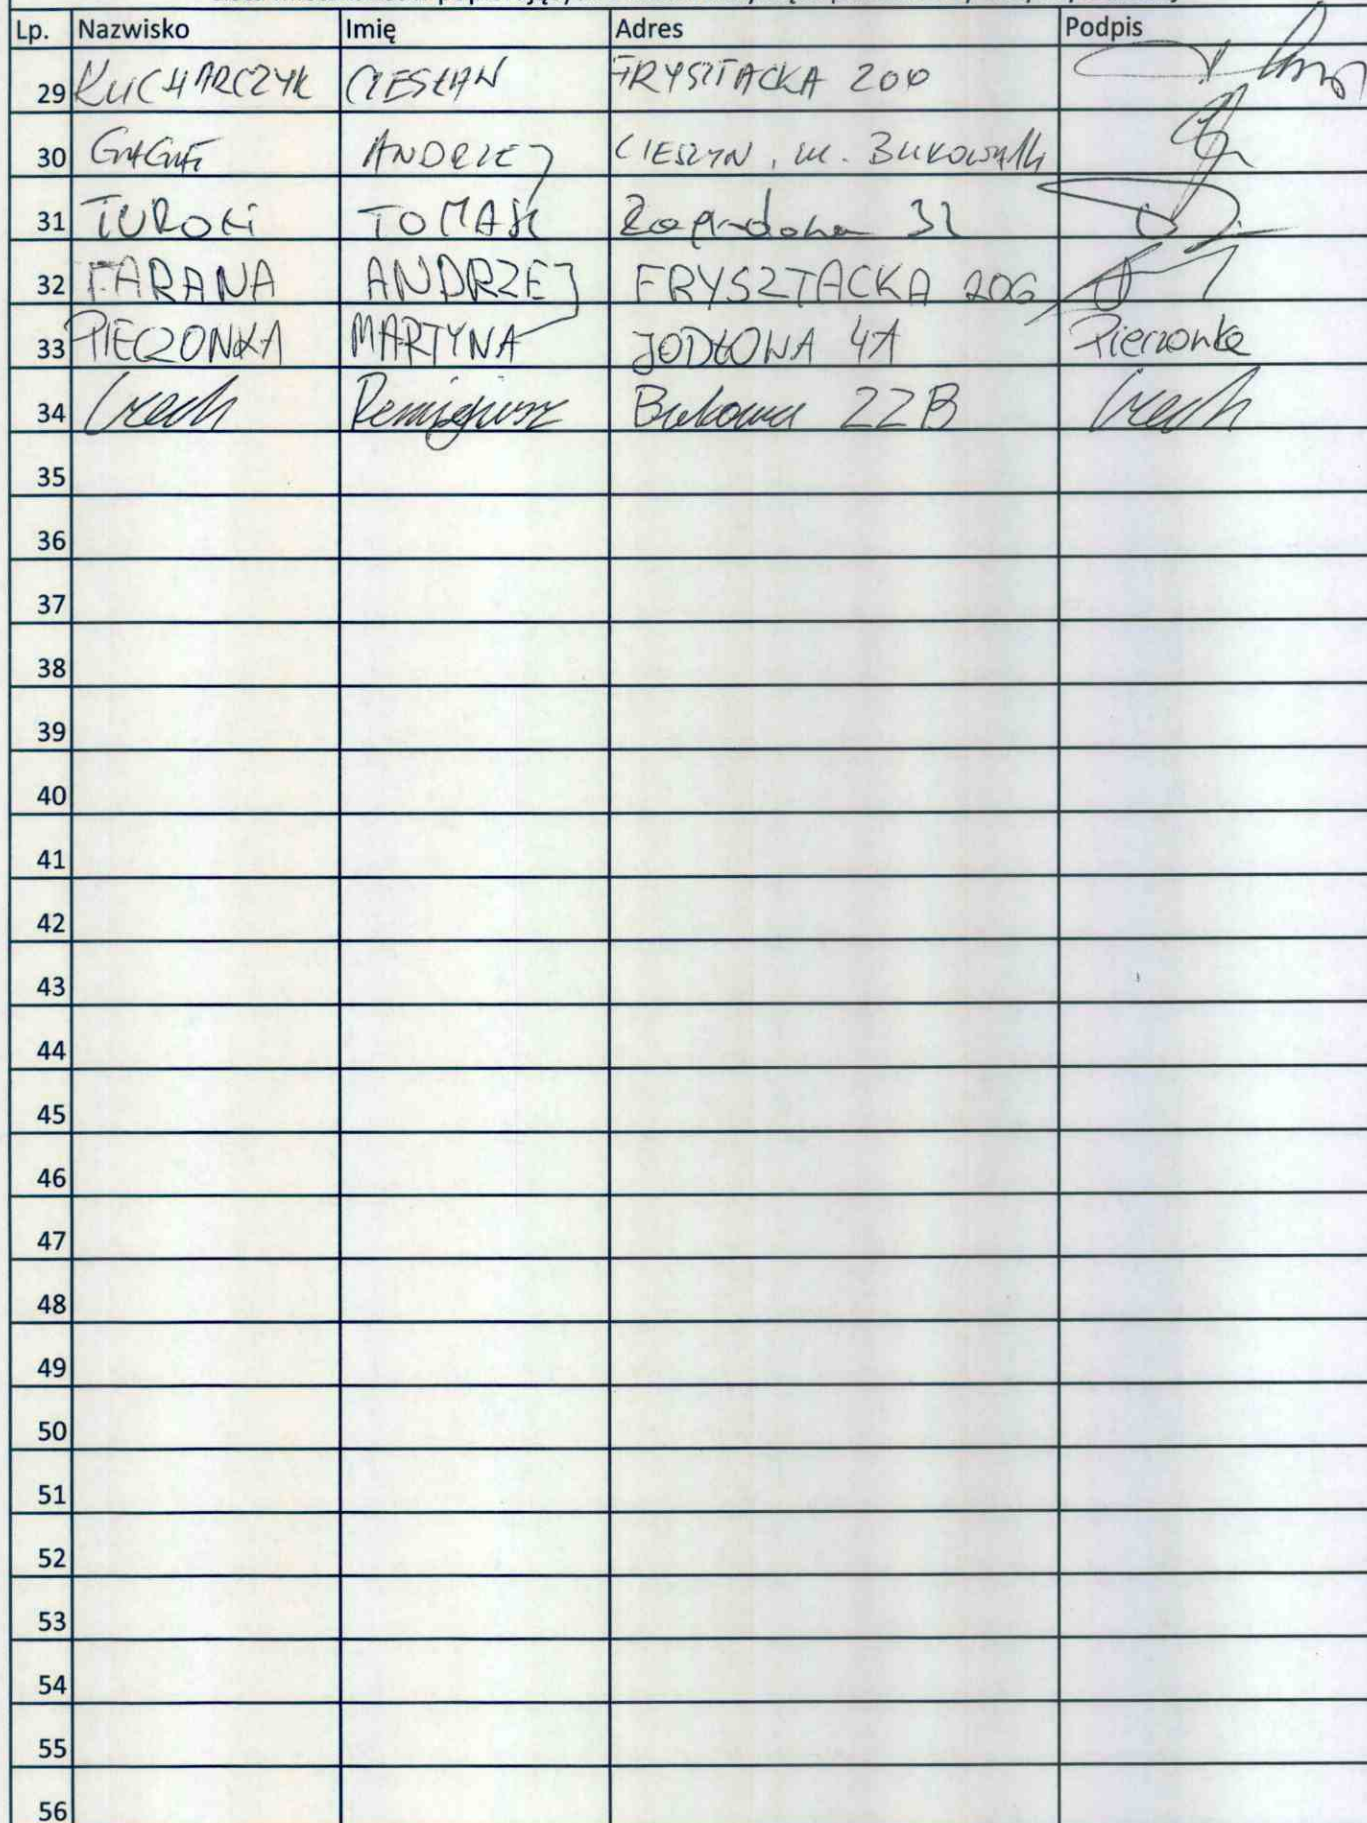 Lp. Nazwisko Imię Adres Podpis
29 KUCHARCZYK CZESŁAW FRYSZTACKA 200
30 ANDRZEJ CIESZYN, ul.
31 TOMASZ 32
32 FARANA ANDRZEJ FRYSZTACKA 206
33 PIECZONKA MARTYNA JODŁOWA 4A Pieczonka
34 Czech Remigiusz Bukowa 22B Czech
35
36
37
38
39
40
41
42
43
44
45
46
47
48
49
50
51
52
53
54
55
56